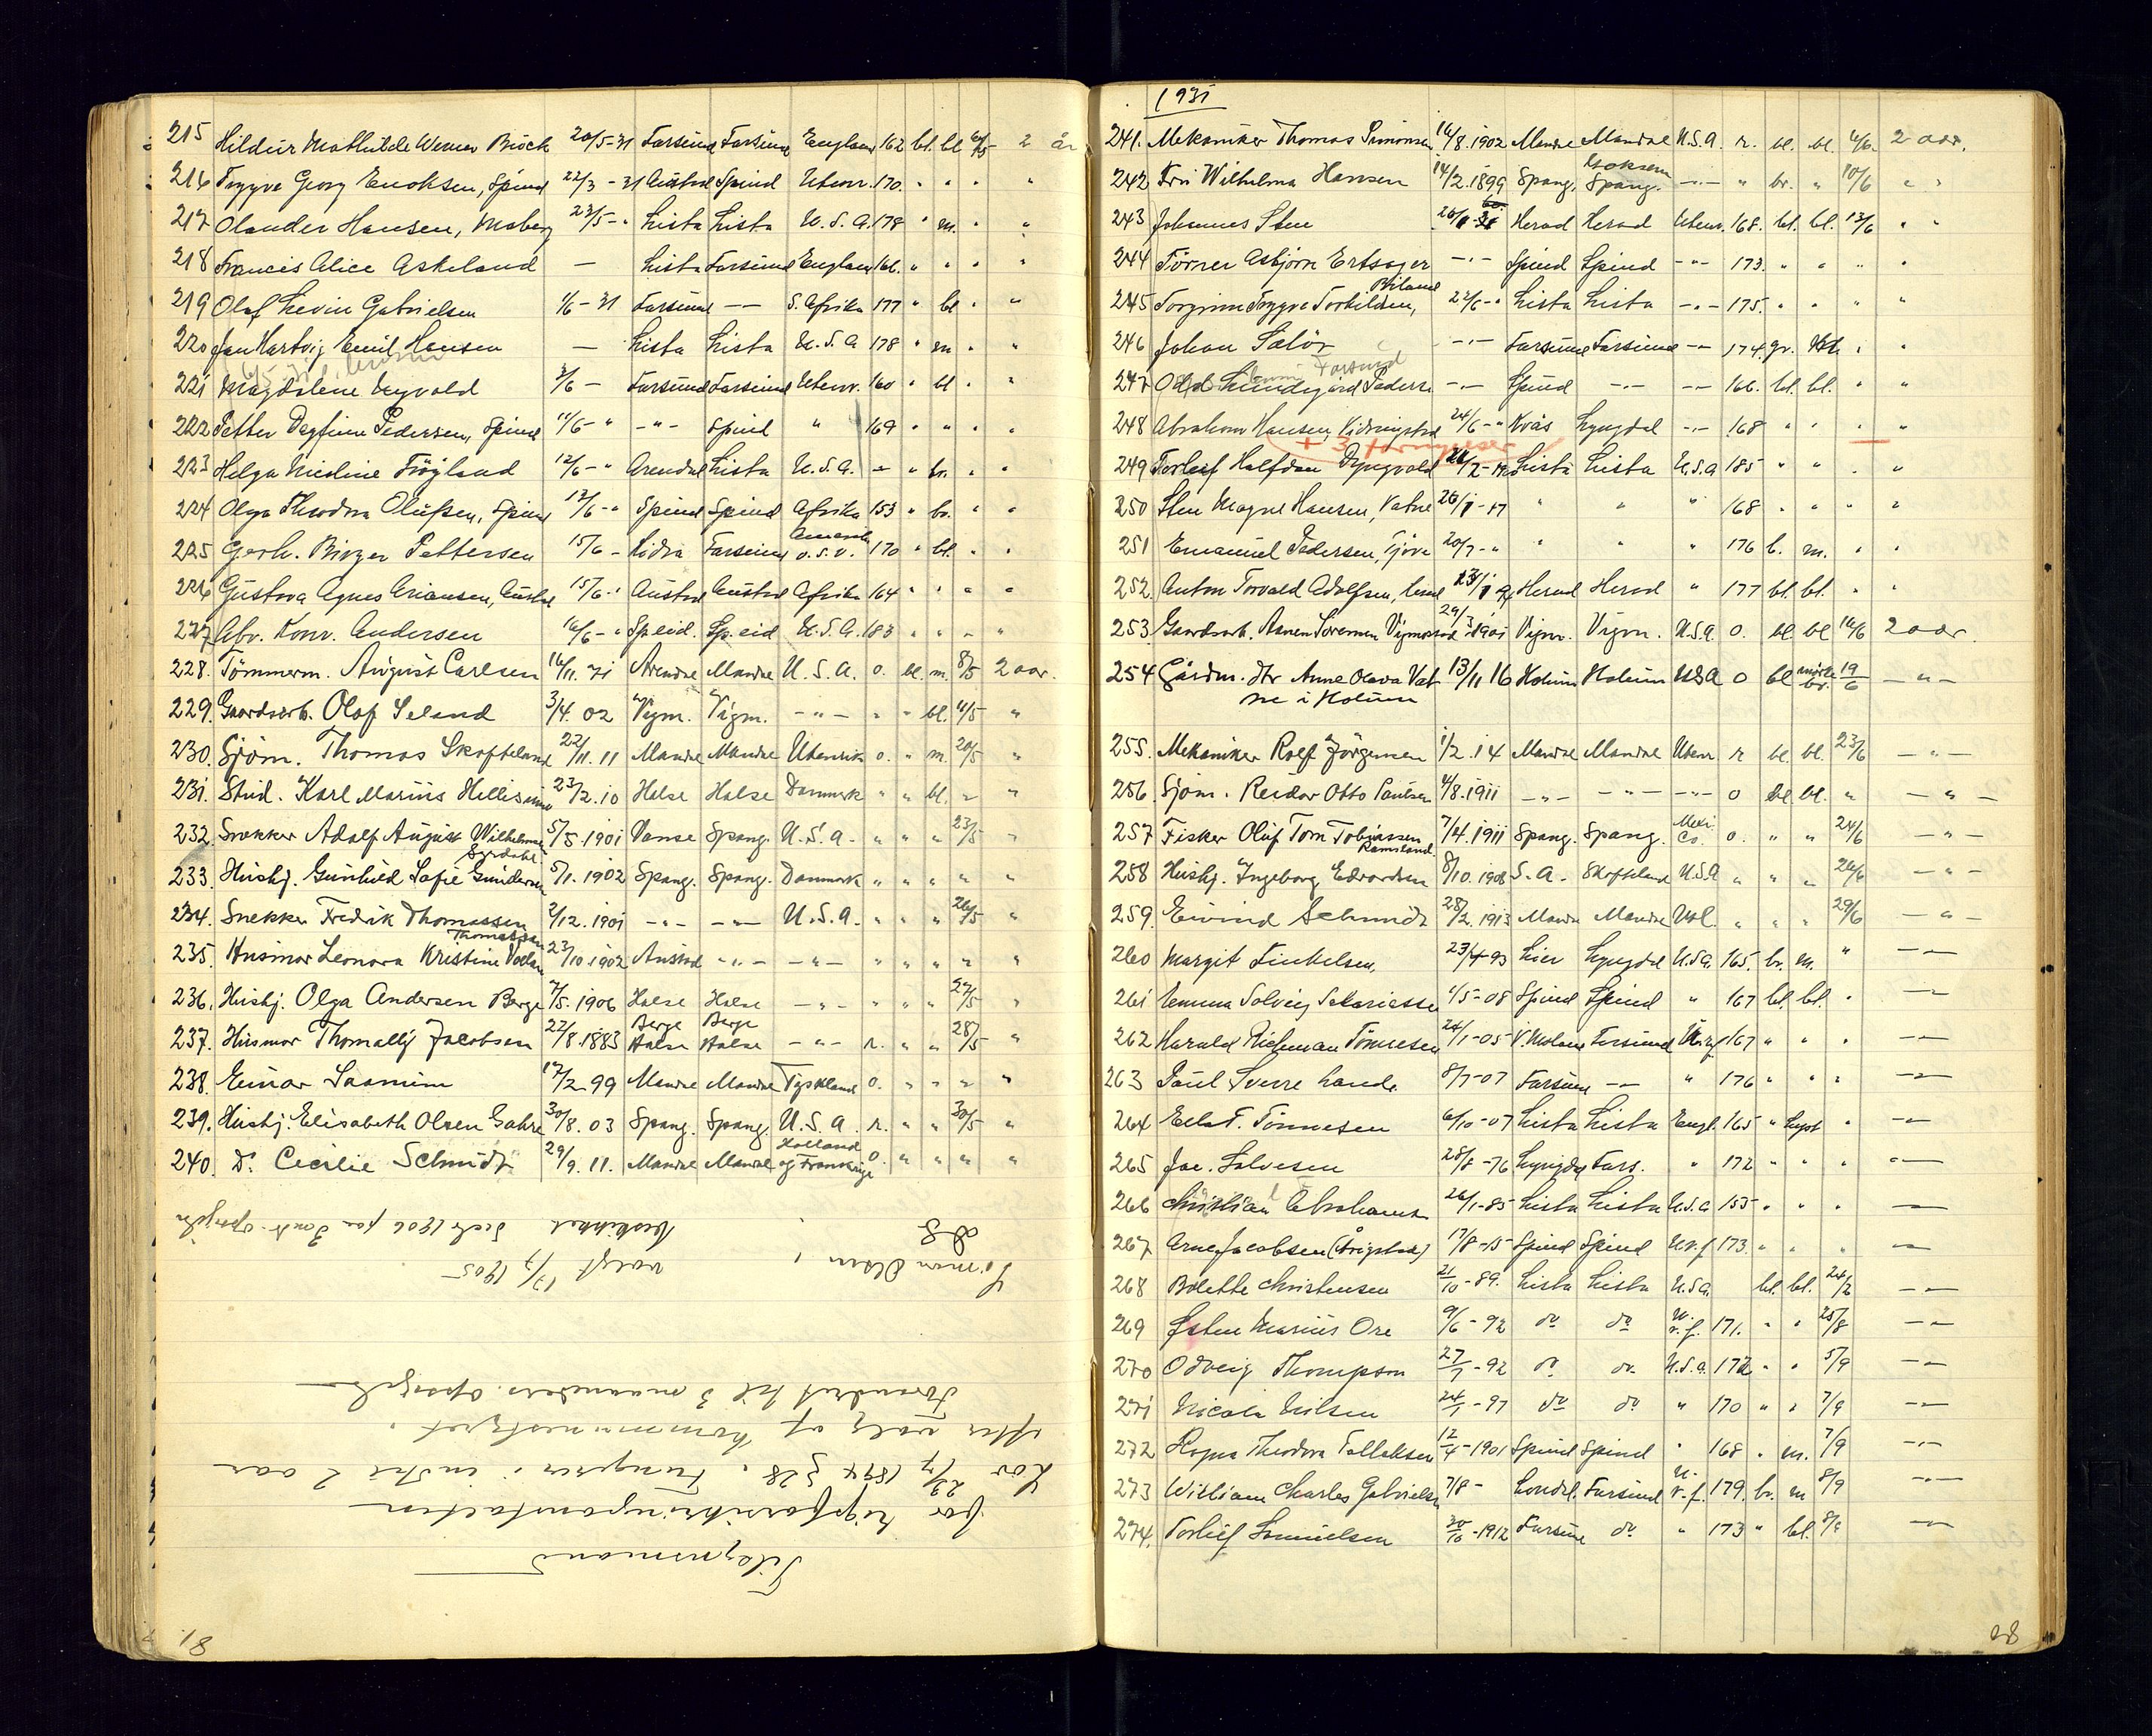 215 Hildur Mathilde Werner Brock 20/5-31 Farsund Farsund England 162 bl. bl 2 år
216 Trygve Georg Enoksen, Spind 22/3 - 31 Austad Spind Utenr. 170. " " " "
217 Olander Hansen, Moberg 23/5 - " Lista Lista U.S.A. 178 " m. " "
218 Francis Alice Askeland — Lista Farsund England 161. " " " "
219 Olaf Levin Gabrielsen 1/6 - 31 Farsund — — S. Afrika 177 " bl " "
220 Jan Hartvig Emil Hansen — Lista Lista U.S.A 178 " m " "
221 Magdalene Nygvold 3/6 — Farsund Farsund Utenr. 160 " bl " "
222 Petter Dagfinn Pedersen, Spind 11/6 - " - " - Spind " 169 " " " "
223 Helga Nicoline Frøyland 12/6 - " Arendal Lista U.S.A. — " br. " "
224 Olga Theodora Olufsen, Spind 12/6 - " Spind Spind Afrika 153 " br. " "
225 Gerh. Birger Pettersen 15/6 - Hidra Farsund Amerik o.s.v. 170 " bl. " "
226 Gustava Agnes Ariansen, Austad 15/6 - " Austad Austad Afrika 164 " " " "
227 Abr. Konr. Andersen 16/6 - " Sp.eid. Sp.eid U.S.A. 183 " " " "
228. Tömmerm. August Carlsen 14/11. 71 Arendal Mandal U.S.A. o. bl. m. 8/5 2 aar.
229. Gaardsarb. Olaf Leland 3/4. 02 Vigm. Vigm. - " - " " bl. 11/5 "
230. Sjöm. Thomas Skofteland 22/11. 11 Mandal Mandal Utenriks o. " m. 20/5 "
231. Stud. Karl Marius Hillesund 23/2. 10 Halse Halse Danmark " " bl. " "
232. Snekker Adolf August Wilhelmsen Syrdahl. 5/5 1901 Vanse Spang. U.S.A. " " " 23/5 "
233. Hushj. Gunhild Sofie Gundersen 5/1. 1902 Spang. Spang. Danmark " " " " "
234. Snekker Fredrik Thomassen 2/12. 1901 - " - - " - U.S.A. " " " 26/5 "
235. Husmor Leonora Kristine Thomassen 23/10. 1902 Austad - " - - " - " " " " "
236. Hushj. Olga Andersen Berge 7/5. 1906 Halse Halse - " - " " " 27/5 "
237. Husmor Thomally Jacobsen 22/8. 1883 Berge Halse Berge Halse - " - r. " " 28/5 "
238. Einar Saanum 17/2. 99 Mandal Mandal Tyskland o. " " " "
239. Hushj. Elisabeth Olsen Gahre 30/8. 03 Spang. Spang. U.S.A. r. " " 30/5 "
240. D. Cecilie Schmidt 29/9. 11. Mandal Mandal Holland og Frankrige o. " " " "
Tilsynsmand
for
Lov 27/7 1894 § 28. Fungerer: indtil 2 aar
efter valg af kommunestyret.
Forandret til 3 maaneders opsigelse
Simon Olsen, valgt 17/7 1905
1906
81.
1931
241. Mekaniker Thomas Simonsen 16/8. 1902 Mandal Mandal U.S.A. r. bl. bl. 4/6. 2 aar.
242 Fru Wilhelma Hansen 14/2. 1899 Spang. Spang. - " - " br. " 10/6 " "
243 Johannes Sten Herad Herad Utenr. 168. bl. bl. 13/6 " "
244 Törner Asbjørn Ertsager - " - Spind Spind - " - 173. " " " "
245 Torginn Trygve Torkildsen, Biland 22/6 - " Lista Lista - " - 175. " " " "
246 Johan Salör - " - Farsund Farsund - " - 174. gr. " "
247 Odd Lundegård Pedersen - " - Spind - " - - " - 166. bl. bl. " "
248 Abraham Hansen, Vidringstad 24/6 - " Kvås Lyngdal - " - 168 " " " "
+ 3 fornyelser
249 Torleif Halfdan Nyngvold Lista Lista U.S.A 185 " " " "
250 Sten Magne Hansen, Vatne 26/1 - 17 " " " 168 " " " "
251 Emanuel Pedersen, Tjøve 20/7 - " " " " 176 b. m. " "
252. Anton Torvald Adolfsen, Herad Herad " 177 bl. bl. " "
253 Gaardsarb. Asmen Sørensen Vigmostad 29/3 1901 Vigm. Vigm. U.S.A. o. bl. bl. 16/6 2 aar.
254 Gårdm. dtr Anne Olava Vatne i Holum 13/11 16 Holum Holum USA o bl mörke br. 19/6 — " —
255. Mekaniker Rolf Jörgensen 1/2. 14 Mandal Mandal Utenr r bl. bl. 23/6 — " —
256. Sjöm. Reidar Otto Paulsen 4/8. 1911 — " — — " — — " — o bl. bl. " — " —
257 Fisker Oluf Tom Tobiassen Ramsland. 7/4. 1911 Spang. Spang. Mexi Co. o. " " 24/6 — " —
258 Hushj. Ingeborg Edvardsen 8/10. 1908 S.A. Skofteland U.S.A " " " 26/6 — " —
259. Eivind Schmidt 28/2. 1913 Mandal Mandal " " " 29/6 — " —
260 Margit Finkelsen, 23/4-93 Lier Lyngdal U.S.A. 165. br. m. " — " —
261 Emma Solveig Sakariassen 1/5-08 Spind Spind " 167 bl. bl. " — " —
262 Harald Richman Tönnesen 24/1-05 Farsund 167 " " " — " —
263 Paul Sverre Lande 8/7-07 Farsund — " — " 176 " " " — " —
264 Tönnesen 6/10-07 Lista Lista Engl. 165 " lyst " — " —
265 Joe. Salvesen 28/8-76 Lyngdal Fars. " 172 " " " — " —
266 Christian Abrahamsen 26/1-85 Lista Lista U.S.A 155 " " " — " —
267 Arne Jacobsen (Årigstad) 17/8-15 Spind Spind U.v.f 173. " " " — " —
268 Bolette Christensen 21/10-89. Lista Lista U.S.A. bl. bl. — " —
269 Østen Marius Ore 9/6-92 do do U.v.f. 171. " " 25/8 — " —
270 Odveig Thompson 27/7-92 do do U.S.A. 172 " " 5/9 — " —
271 Nicolai Nilsen 24/1-97 do do " 170 " " 7/9 — " —
272 Theodora Tallaksen 12/4-1901 Spind Spind " 168 " m. 7/9 — " —
273 William Charles Gabrielsen 7/8 - Farsund U.v.f. 179. br. m 8/9 — " —
274. Torleif Samuelsen 30/10-1912 Farsund do " 173 " bl. 8/9 — " —